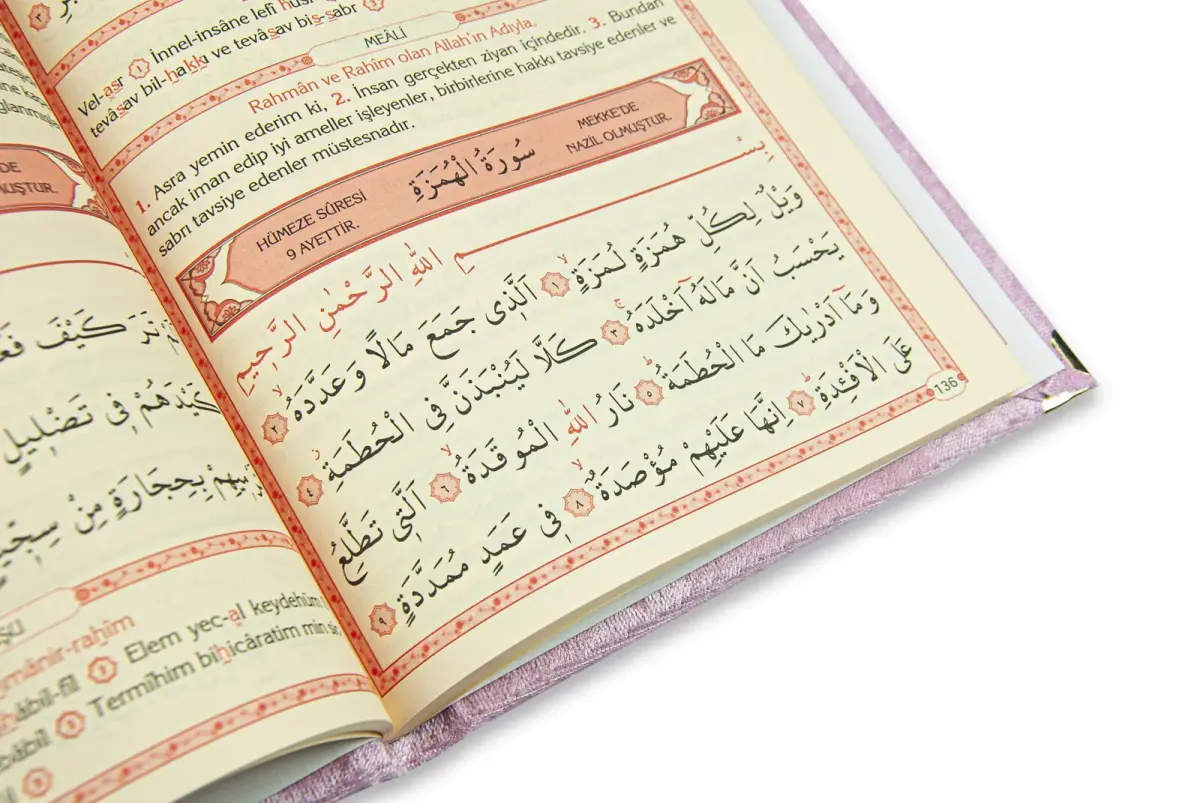 Vel-asr ① İnnel-insâne lefî
tevâsav bil-hakkı ve tevâsav bis-sabr ③
MEÂLİ
Rahmân ve Rahîm olan Allah'ın Adıyla.
1. Asra yemin ederim ki, 2. İnsan gerçekten ziyan içindedir. 3. Bundan
ancak iman edip iyi ameller işleyenler, birbirlerine hakkı tavsiye edenler ve
sabrı tavsiye edenler müstesnadır.
HÜMEZE SÛRESİ
9 AYETTİR.
سُورَةُ الْهُمَزَةِ
MEKKE'DE
NAZİL OLMUŞTUR.
بِسْمِ اللّٰهِ الرَّحْمٰنِ الرَّحِيمِ
وَيْلٌ لِكُلِّ هُمَزَةٍ لُمَزَةٍۙ ﴿١﴾ اَلَّذِى جَمَعَ مَالًا وَعَدَّدَهُۙ ﴿٢﴾
يَحْسَبُ اَنَّ مَالَهُٓ اَخْلَدَهُۚ ﴿٣﴾ كَلَّا لَيُنْبَذَنَّ فِى الْحُطَمَةِۘ ﴿٤﴾
وَمَٓا اَدْرٰيكَ مَا الْحُطَمَةُۜ ﴿٥﴾ نَارُ اللّٰهِ الْمُوقَدَةُۙ ﴿٦﴾ اَلَّتِى تَطَّلِعُ
عَلَى الْاَفْـِٔدَةِۜ ﴿٧﴾ اِنَّهَا عَلَيْهِمْ مُؤْصَدَةٌۙ ﴿٨﴾ فِى عَمَدٍ مُمَدَّدَةٍ ﴿٩﴾
136
كَيْفَ
كَيْدَهُمْ فِى تَضْلِيلٍ
بِحِجَارَةٍ مِنْ
Elem yec-al keydehüm
Termîhim bihicâratim min